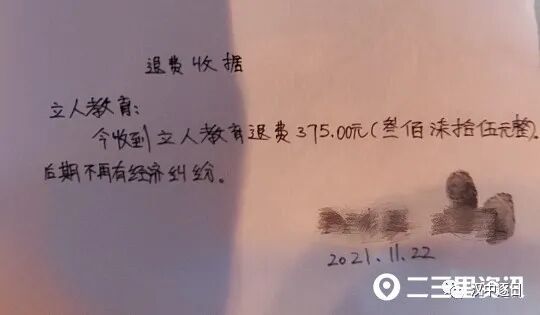 退费收据
立人教育:
今收到立人教育退费375.00元(叁佰柒拾伍元整).
后期不再有经济纠纷。
2021.11.22
二三里资讯
汉中逐日